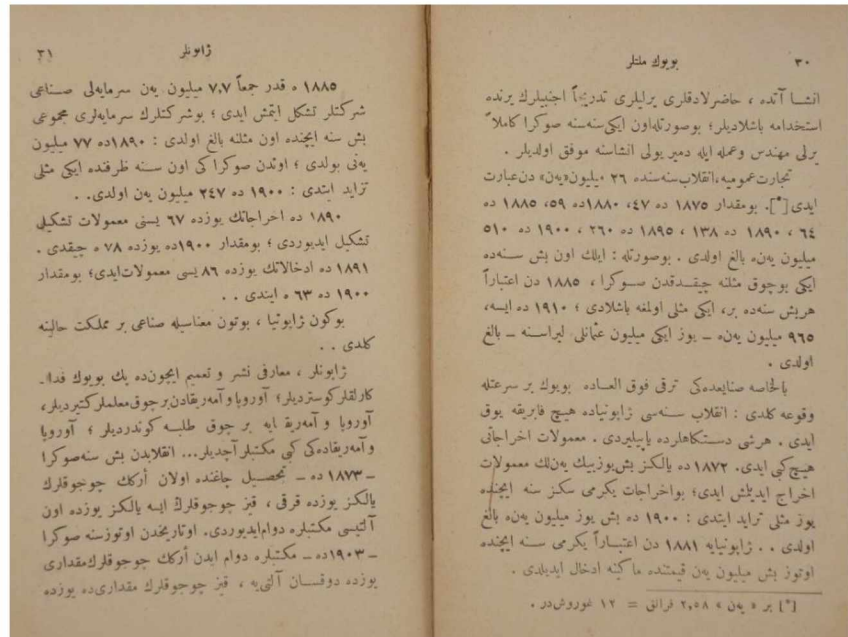 ٣٠
بويوك ملتلر
انشا آتده ، حاضرلادقلرى يرليلرى تدريجاً اجنبيلرك يرنده
استخدامه باشلاديلر؛ بوصورتله اون ايكى سنه صوكرا كاملاً
يرلى مهندس وعمله ايله دمير يولى انشاسنه موفق اولديلر .
تجارت عموميه، انقلاب سنه سنده ٢٦ ميليون «يەن» دن عبارت
ايدى [*]. بومقدار ١٨٧٥ ده ٤٧، ١٨٨٠ده ٥٩، ١٨٨٥ ده
٦٤ ، ١٨٩٠ ده ١٣٨ ، ١٨٩٥ ده ٢٦٠ ، ١٩٠٠ ده ٥١٠
ميليون يەنه بالغ اولدى . بوصورتله : ايلك اون بش سنه ده
ايكى بوچوق مثلنه چيقدقدن صوكرا ، ١٨٨٥ دن اعتباراً
هربش سنه ده بر، ايكى مثلى اولمغه باشلادى ؛ ١٩١٠ ده ايسه،
٩٦٥ ميليون يەنه – يوز ايكى ميليون عثمانلى ليراسنه – بالغ
اولدى .
بالخاصه صنايعده كى ترقى فوق العاده بويوك بر سرعتله
وقوعه كلدى : انقلاب سنه سى ژاپونياده هيچ فابريقه يوق
ايدى . هرشى دستكاهلرده ياپيليردى . معمولات اخراجاتى
هيچ كبى ايدى. ١٨٧٢ ده يالكز بش يوزبيك يەنلك معمولات
اخراج ايديلمش ايدى؛ بواخراجات يكرمى سكز سنه ايچنده
يوز مثلى تزايد ايتدى : ١٩٠٠ ده بش يوز ميليون يەنه بالغ
اولدى . . ژاپونيايه ١٨٨١ دن اعتباراً يكرمى سنه ايچنده
اوتوز بش ميليون يەن قيمتنده ماكينه ادخال ايديلدى .
[*] بر « يەن » ٢,٥٨ فرانق = ١٢ غروشدر .
ژاپونلر
٣١
١٨٨٥ ه قدر جمعاً ٧,٧ ميليون يەن سرمايه لى صناعى
شركتلر تشكل ايتمش ايدى ؛ بوشركتلرك سرمايه لرى مجموعى
بش سنه ايچنده اون مثلنه بالغ اولدى : ١٨٩٠ده ٧٧ ميليون
يەنى بولدى ؛ اوندن صوكراكى اون سنه ظرفنده ايكى مثلى
تزايد ايتدى : ١٩٠٠ ده ٢٤٧ ميليون يەن اولدى. .
١٨٩٠ ده اخراجاتك يوزده ٦٧ يسنى معمولات تشكيل
تشكيل ايديوردى ؛ بومقدار ١٩٠٠ده يوزده ٧٨ ه چيقدى .
١٨٩١ ده ادخالاتك يوزده ٨٦ يسى معمولات ايدى؛ بومقدار
١٩٠٠ ده ٦٣ ه ايندى . .
بوكون ژاپونيا ، بوتون معناسيله صناعى بر مملكت حالينه
كلدى . .
ژاپونلر ، معارفى نشر و تعميم ايچون ده پك بويوك فدا-
كارلقلر كوستر ديلر؛ آوروپا و آمه ريقادن بر چوق معلملر كتيرديلر،
آوروپا و آمه ريقا يه بر چوق طلبه كوندرديلر ؛ آوروپا
و آمه ريقاده كى كبى مكتبلر آچديلر... انقلابدن بش سنه صوكرا
– ١٨٧٣ ده – تحصيل چاغنده اولان أركك چوجوقلرك
يالكز يوزده قرقى ، قيز چوجوقلرك ايسه يالكز يوزده اون
آلتيسى مكتبلره دوام ايديوردى. او تاريخدن اوتوز سنه صوكرا
– ١٩٠٣ ده – مكتبلره دوام ايدن أركك چوجوقلرك مقدارى
يوزده دوقسان آلتى يه ، قيز چوجوقلرك مقدارى ده يوزده